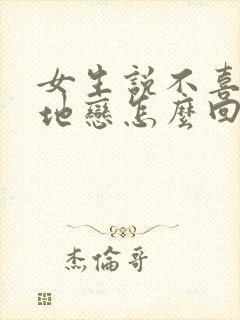 女生說不喜
地戀怎麼回
杰倫哥